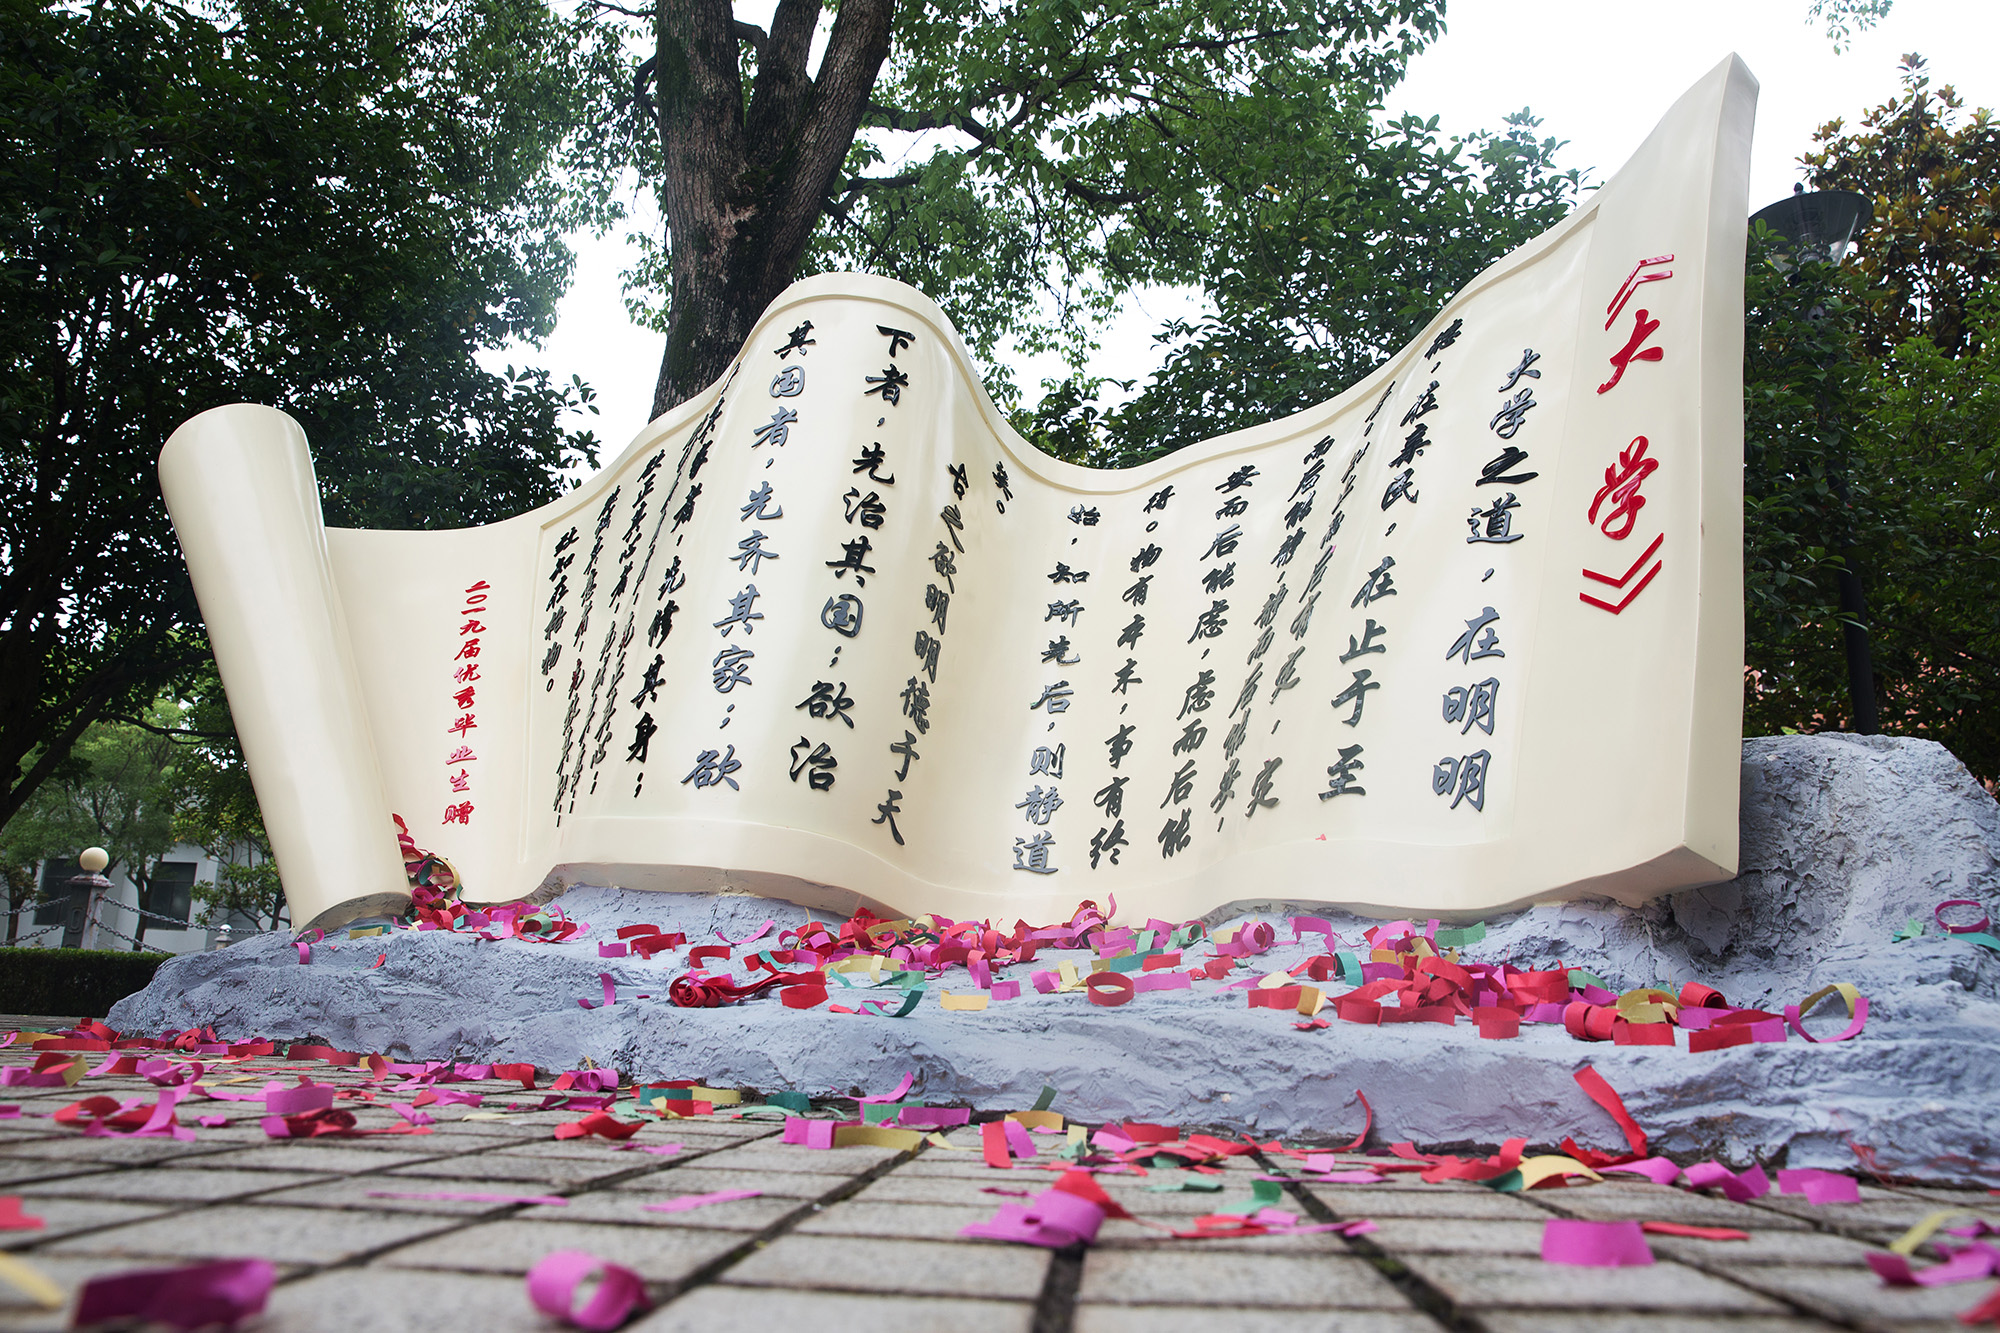 《大 学》
大学之道，在明明
德，在亲民，在止于至
善。知止而后有定，定
而后能静，静而后能安，
安而后能虑，虑而后能
得。物有本末，事有终
始，知所先后，则静道
矣。
古之欲明明德于天
下者，先治其国；欲治
其国者，先齐其家；欲
齐其家者，先修其身；
欲修其身者，先正其心；
欲正其心者，先诚其意；
致知在格物。
二〇一九届优秀毕业生赠